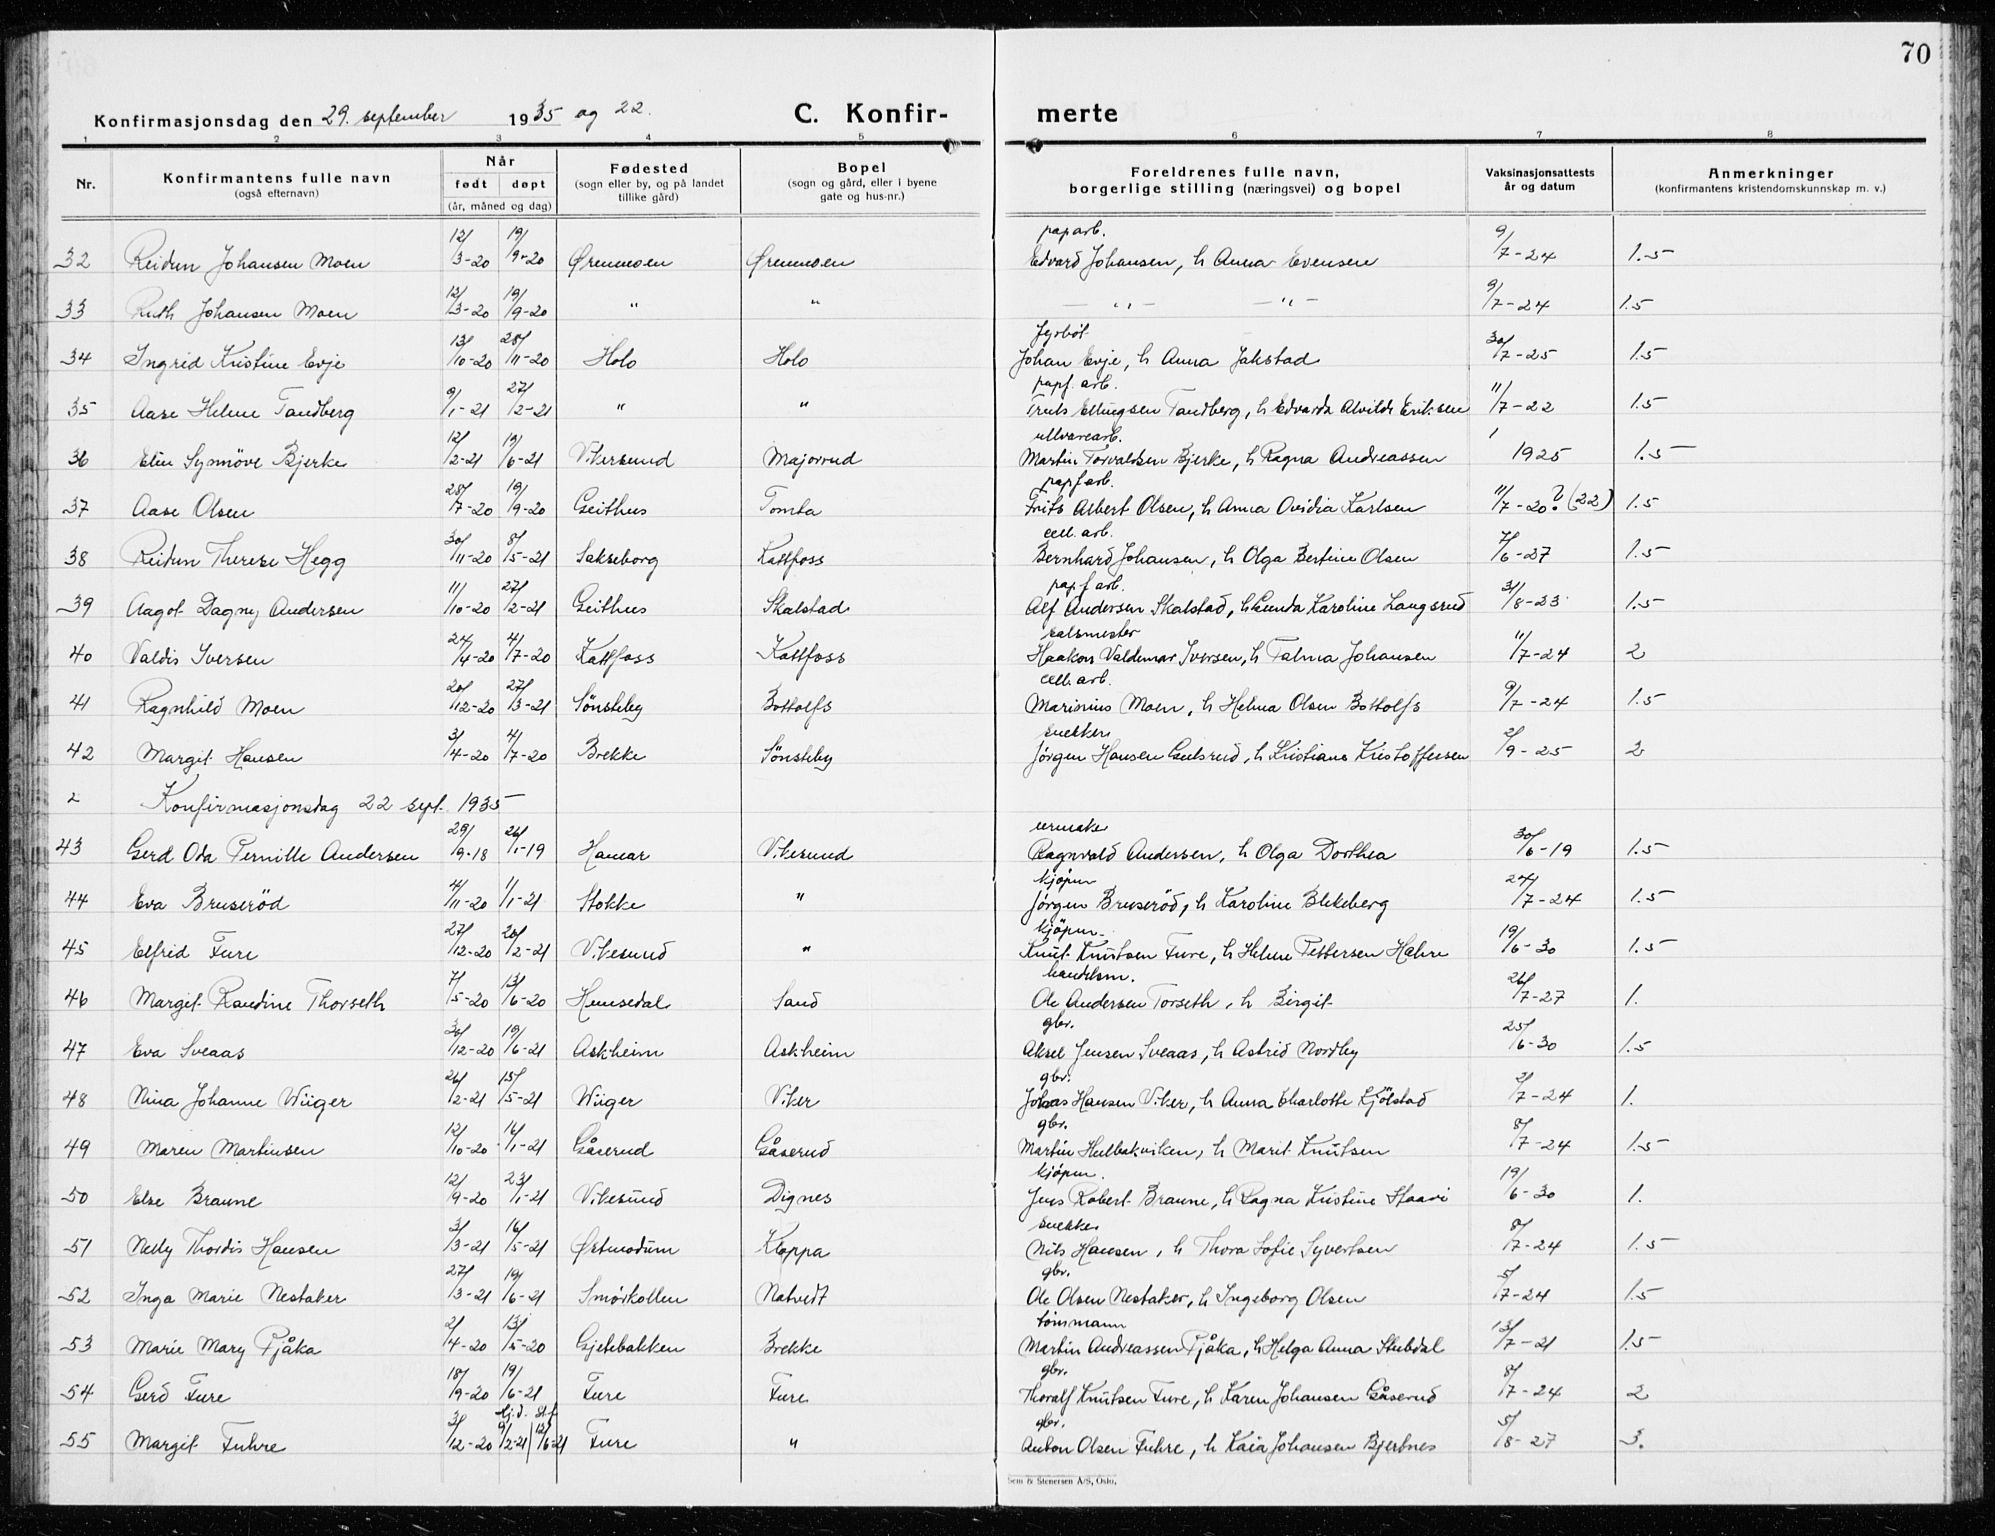 70
Konfirmasjonsdag den 29. september 1935 og 22.
C. Konfir-
merte
1 2 3 4 5 6 7 8
Nr. Konfirmantens fulle navn (også efternavn) Når født døpt (år, måned og dag) Fødested (sogn eller by, og på landet tillike gård) Bopel (sogn og gård, eller i byene gate og hus-nr.) Foreldrenes fulle navn, borgerlige stilling (næringsvei) og bopel Vaksinasjonsattests år og datum Anmerkninger (konfirmantens kristendomskunnskap m. v.)
paparb.
32 Reidun Johansen Moen 12/3-20 19/9-20 Ørenmoen Ørenmoen Edvard Johansen, h Anna Evensen 9/7-24 1.5
33 Ruth Johansen Moen 12/3-20 19/9-20 " " — " — — " — 9/7-24 1.5
34 Ingrid Kristine Evje 13/10-20 28/11-20 Holo Holo Johan Evje, h Anna Jahstad 30/7-25 1.5
papf. arb.
35 Aase Helene Tandberg 9/1-21 27/2-21 " " Truls Ellingsen Tandberg, h Edvarda Alvilde Eriksen 11/7-22 1.5
ullvarearb.
36 Elin Synnöve Bjerke 12/2-21 19/6-21 Vikersund Majorrud Martin Torvaldsen Bjerke, h Ragna Andreassen 1925 1.5
papfarb.
37 Aase Olsen 28/7-20 19/9-20 Geithus Tomta Frits Albert Olsen, h Anna Ovidia Karlsen 11/7-20? (22) 1.5
cell. arb.
38 Reidun Therese Hegg 30/11-20 8/5-21 Sakseborg Kattfoss Bernhard Johansen, h Olga Bertine Olsen 7/6-27 1.5
papf arb.
39 Aagot Dagny Andersen 11/10-20 27/2-21 Geithus Skalstad Alf Andersen Skalstad, h Gunda Karoline Langsrud 31/8-23 1.5
salsmester
40 Valdis Iversen 24/4-20 4/7-20 Kattfoss Kattfoss Haakon Valdemar Iversen, h Talma Johansen 11/7-24 2
cell. arb.
41 Ragnhild Moen 20/12-20 27/3-21 Sönsteby Bottolfs Marinius Moen, h Helma Olsen Bottolfs 9/7-24 1.5
snekker
42 Margit Hansen 3/4-20 4/7-20 Brekke Sönsteby Jörgen Hansen Gulsrud, h Kristiane Kristoffersen 2/9-25 2
2 Konfirmasjonsdag 22 sept. 1935
urmaker
43 Gerd Oda Pernille Andersen 29/9-18 26/1-19 Hamar Vikesund Ragnvald Andersen, h Olga Dorthea 30/6-19 1.5
kjöpm
44 Eva Bruseröd 4/11-20 1/1-21 Stokke " Jörgen Bruseröd, h Karoline Blekeberg 24/7-24 1.5
kjöpm.
45 Elfrid Fure 27/12-20 20/2-21 Vikesund " Knut Knutsen Fure, h Helene Pettersen Hahre 19/6-30 1.5
handelsm.
46 Margit Randine Thorseth 7/5-20 13/6-20 Hemsedal Sand Ole Andersen Torseth, h Birgit 26/7-27 1.
gbr.
47 Eva Sveaas 30/12-20 19/6-21 Askheim Askheim Aksel Jensen Sveaas, h Astrid Nordby 25/6-30 1.5
gbr.
48 Nina Johanne Wüger 26/2-21 15/5-21 Wüger Viker Johas Hansen Viker, h Anna Charlotte Kjölstad 2/7-24 1.
gbr.
49 Maren Martinsen 12/10-20 16/1-21 Gåserud Gåserud Martin Hulbakviken, h Marit Knutsen 8/7-24 1.5
kjöpm.
50 Else Braune 12/9-20 23/1-21 Vikesund Dignes Jens Robert Braune, h Ragna Kristine Staavi 19/6-30 1.
snekker
51 Nelly Thordis Hansen 3/3-21 16/5-21 Østmodum Kloppa Nils Hansen, h Thora Sofie Syvertsen 8/7-24 1.5
gbr.
52 Inga Marie Nestaker 27/3-21 19/6-21 Smörkollen Natvedt Ole Olsen Nestaker, h Ingeborg Olsen 5/7-24 1.5
tömmann
53 Marie Mary Pjåka 2/4-20 13/5-20 Gjetebakken Brekke Martin Andreassen Pjåka, h Helga Anna Stubdal 13/7-21 1.5
gbr.
54 Gerd Fure 18/9-20 19/6-21 Fure Fure Thoralf Knutsen Fure, h Karen Johansen Gåserud 8/7-24 2
hj.d. st.f. gbr.
55 Margit Fuhre 3/12-20 9/2-21 12/6-21 Fure " Anton Olsen Fuhre, h Kaia Johansen Bjertnes 5/8-27 3.
Sem & Stenersen A/S, Oslo.